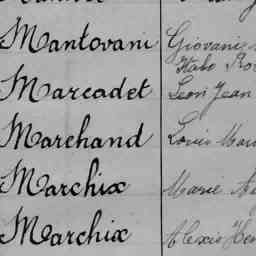 Mantovani Giovanni
Italo
Marcadet Léon Jean
Marchand Louis
Marchix Marie
Marchix Alexis